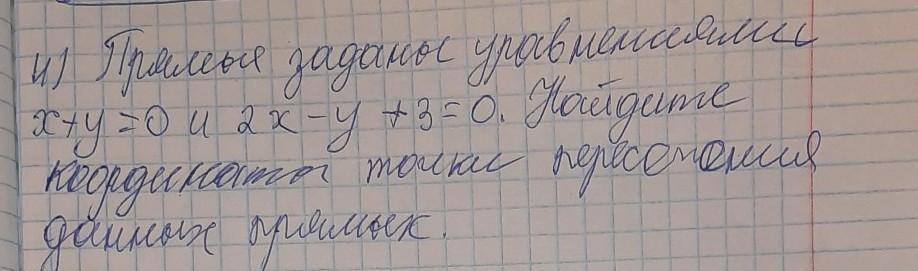 4) Прямые заданы уравнениями
x+y=0 и 2x-y+3=0. Найдите
координаты точки пересечения
данных прямых.